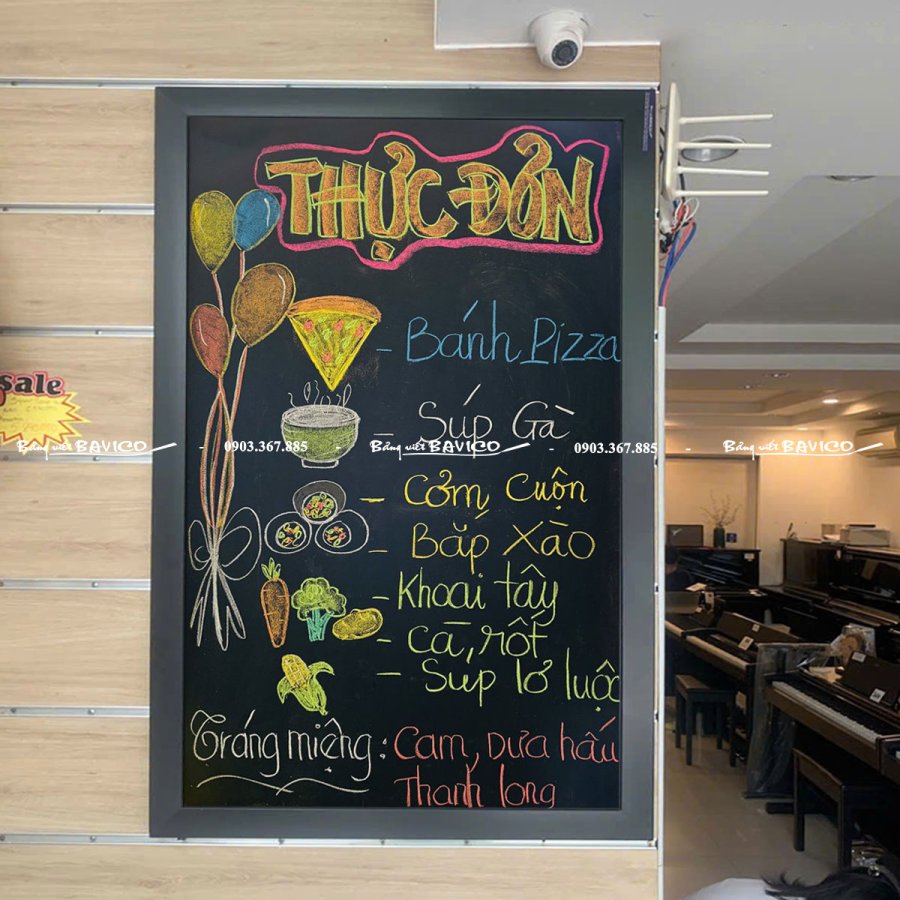 THỰC ĐƠN
- Bánh Pizza
- Súp Gà
- Cơm Cuộn
- Bắp Xào
- Khoai tây
- Cà, rốt
- Súp lơ luộc
Tráng miệng: Cam, Dưa hấu
Thanh long
sale
Bảng viết BAVICO - 0903.367.885 - Bảng viết BAVICO - 0903.367.885 - Bảng viết BAVICO